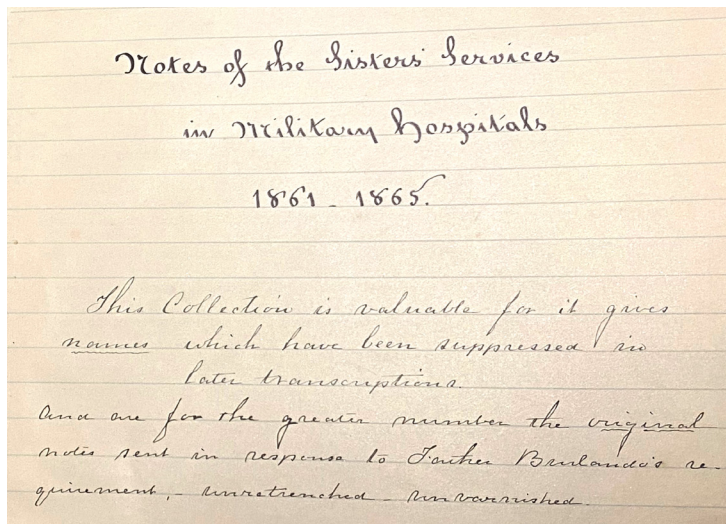 Notes of the Sisters' Services
in Military Hospitals
1861 - 1865.
This Collection is valuable for it gives
names which have been suppressed in
later transcriptions.
and are for the greater number the original
notes sent in response to Father Burlando's re-
quirement, - unretrenched - unvarnished.